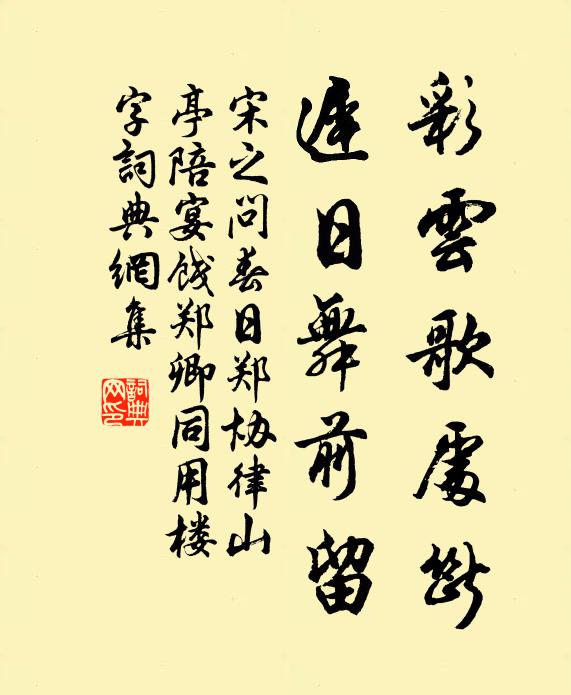 彩雲歌處斷
遲日舞前留
宋之问春日郑协律山
亭陪宴饯郑卿同用楼
字詞典網集
詞典网印